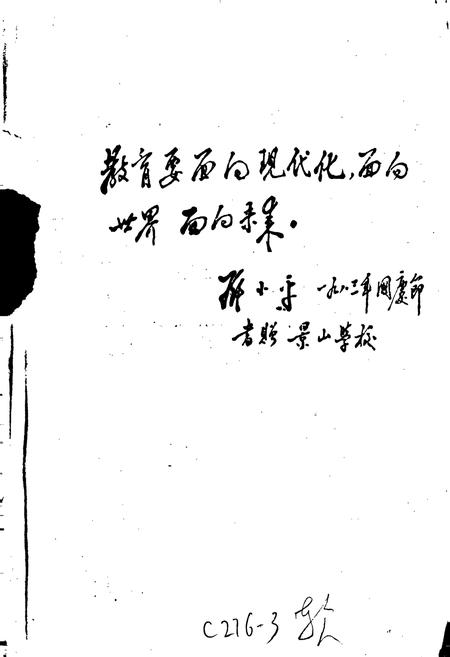 教育要面向现代化,面向
世界 面向未来。
邓小平 一九八三年国庆节
书赠 景山学校
C276-3